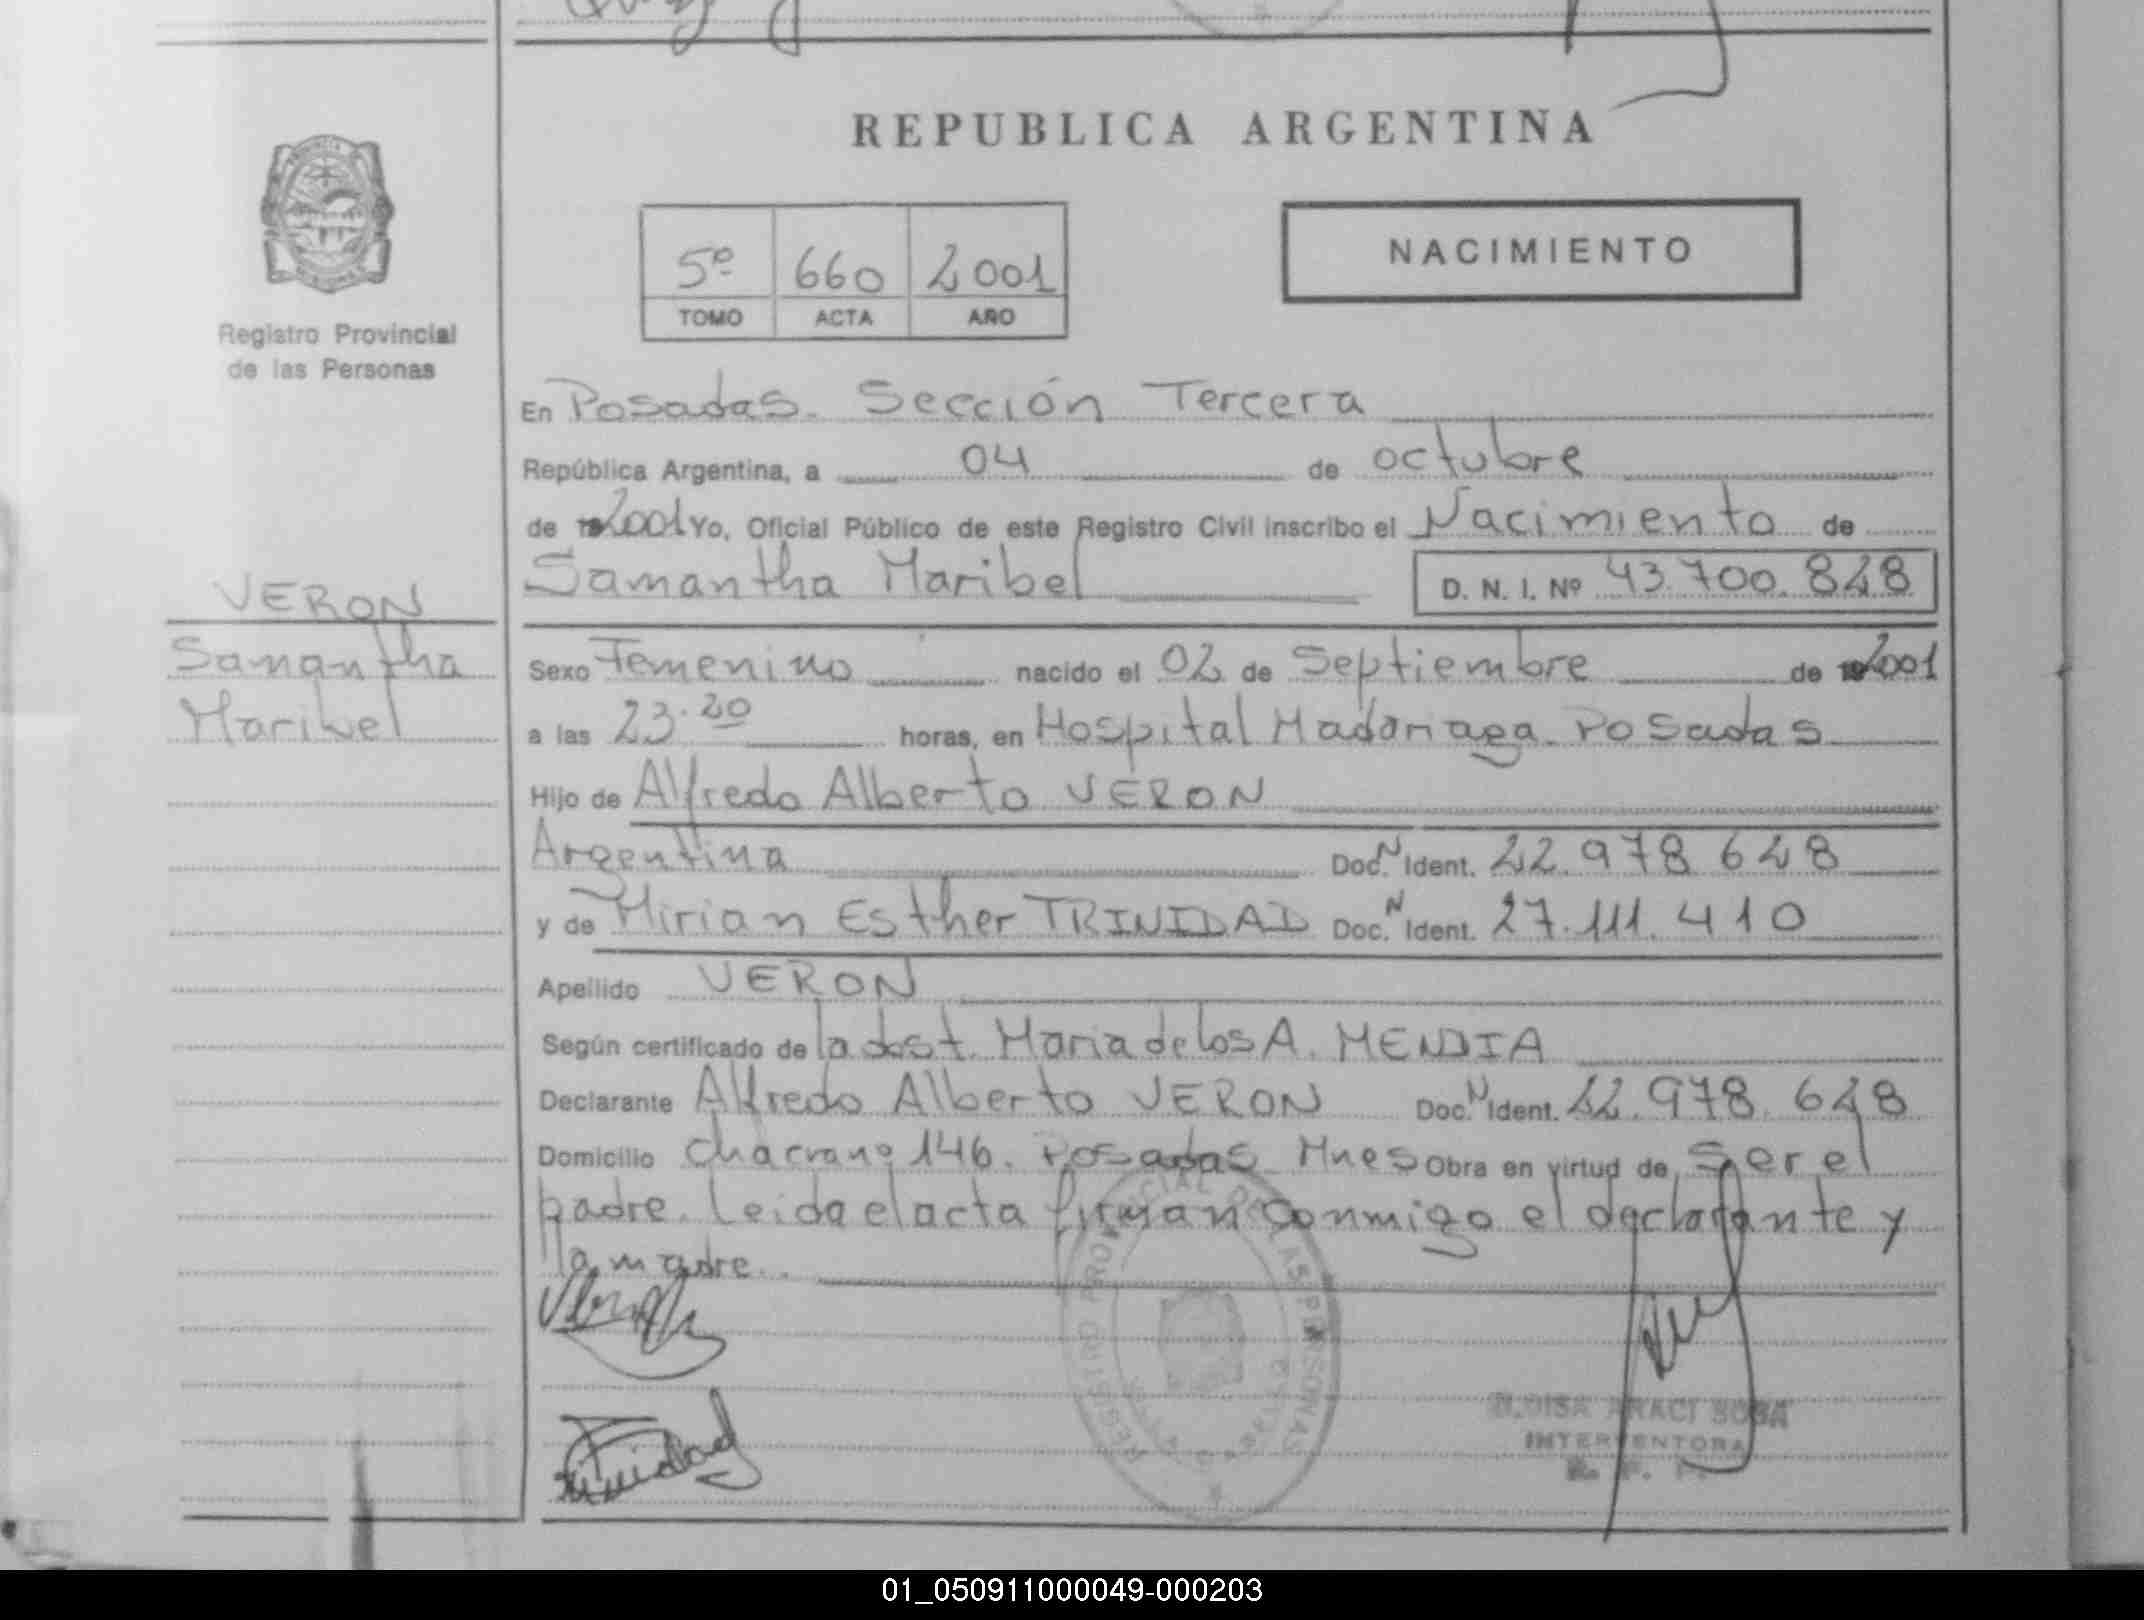 REPUBLICA ARGENTINA
5º 660 2001
TOMO ACTA AÑO
NACIMIENTO
Registro Provincial
de las Personas
En Posadas. Sección Tercera
República Argentina, a 04 de octubre
de 2001 Yo, Oficial Público de este Registro Civil inscribo el Nacimiento de
Samantha Maribel D. N. I. Nº 43.700.828
VERON
Samantha
Maribel
Sexo Femenino nacido el 02 de Septiembre de 2001
a las 23.20 horas, en Hospital Madariaga. Posadas
Hijo de Alfredo Alberto VERON
Argentina Doc. N Ident. 22.978.628
y de Mirian Esther TRINIDAD Doc. N Ident. 27.111.410
Apellido VERON
Según certificado de la obst. Maria de los A. MENDIA
Declarante Alfredo Alberto VERON Doc. N Ident. 22.978.628
Domicilio Chacra nº 146. Posadas Mnes Obra en virtud de Ser el
padre. Leida el acta firman conmigo el declarante y
la madre.
REGISTRO PROVINCIAL DE LAS PERSONAS
Trinidad
ARACI SOSA
INTERVENTORA
R. P. P.
01_050911000049-000203